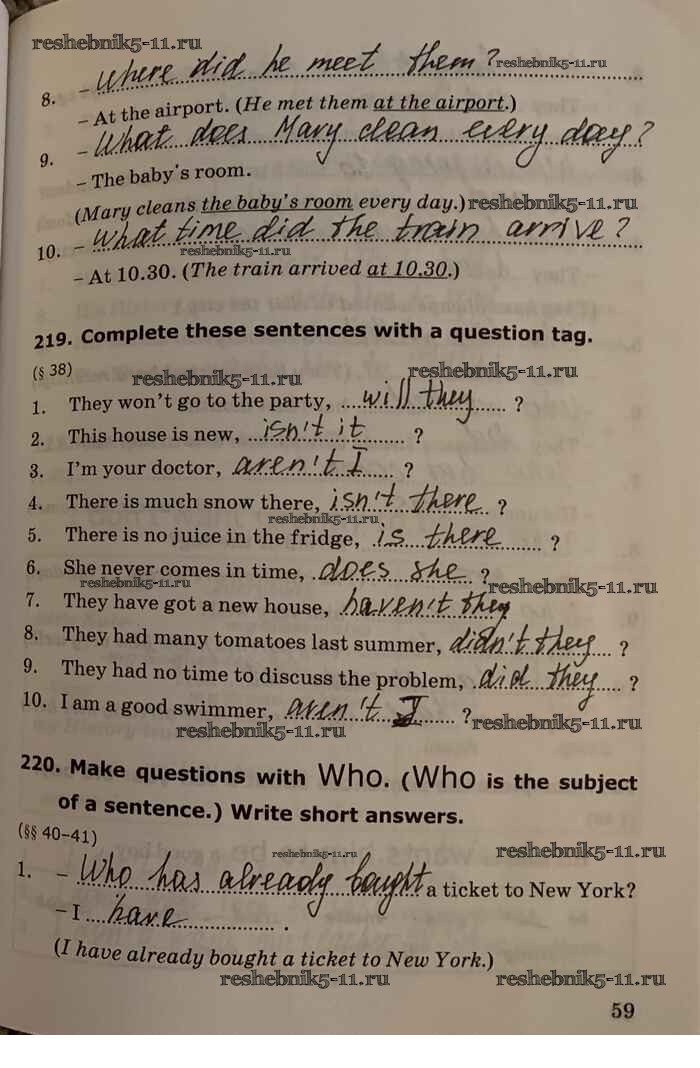 reshebnik5-11.ru
8. – Where did he meet them? reshebnik5-11.ru
– At the airport. (He met them at the airport.)
9. – What does Mary clean every day?
– The baby's room.
(Mary cleans the baby's room every day.) reshebnik5-11.ru
10. – What time did the train arrive?
reshebnik5-11.ru
– At 10.30. (The train arrived at 10.30.)
219. Complete these sentences with a question tag.
(§ 38)
reshebnik5-11.ru reshebnik5-11.ru
1. They won't go to the party, will they ?
2. This house is new, isn't it ?
3. I'm your doctor, aren't I ?
4. There is much snow there, isn't there ?
reshebnik5-11.ru
5. There is no juice in the fridge, is there ?
6. She never comes in time, does she ?
reshebnik5-11.ru reshebnik5-11.ru
7. They have got a new house, haven't they
8. They had many tomatoes last summer, didn't they ?
9. They had no time to discuss the problem, did they ?
10. I am a good swimmer, aren't I ?
reshebnik5-11.ru reshebnik5-11.ru
220. Make questions with Who. (Who is the subject
of a sentence.) Write short answers.
(§§ 40–41)
reshebnik5-11.ru reshebnik5-11.ru
1. – Who has already bought a ticket to New York?
– I have .
(I have already bought a ticket to New York.)
reshebnik5-11.ru reshebnik5-11.ru
59